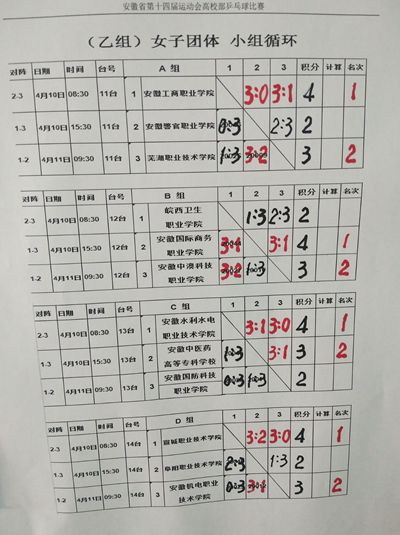 安徽省第十四届运动会高校部乒乓球比赛
（乙组）女子团体 小组循环
对阵 日期 时间 台号 A 组 1 2 3 积分 计算 名次
2-3 4月10日 08:30 11台 1 安徽工商职业学院 3:0 3:1 4 1
1-3 4月10日 15:30 11台 2 安徽警官职业学院 0:3 2:3 2
1-2 4月11日 09:30 11台 3 芜湖职业技术学院 3:2 3 2
对阵 日期 时间 台号 B 组 1 2 3 积分 计算 名次
2-3 4月10日 08:30 12台 1 皖西卫生
职业学院 1:3 2:3 2
1-3 4月10日 15:30 12台 2 安徽国际商务
职业学院 3:1 3:1 4 1
1-2 4月11日 09:30 12台 3 安徽中澳科技
职业学院 3:2 1:3 3 2
对阵 日期 时间 台号 C 组 1 2 3 积分 计算 名次
2-3 4月10日 08:30 13台 1 安徽水利水电
职业技术学院 3:1 3:0 4 1
1-3 4月10日 15:30 13台 2 安徽中医药
高等专科学校 1:3 3:1 3 2
1-2 4月11日 09:30 13台 3 安徽国防科技
职业学院 0:3 1:3 2
对阵 日期 时间 台号 D 组 1 2 3 积分 计算 名次
2-3 4月10日 08:30 14台 1 宣城职业技术学院 3:2 3:0 4 1
1-3 4月10日 15:30 14台 2 阜阳职业技术学院 2:3 1:3 2
1-2 4月11日 09:30 14台 3 安徽机电职业
技术学院 0:3 3:1 3 2